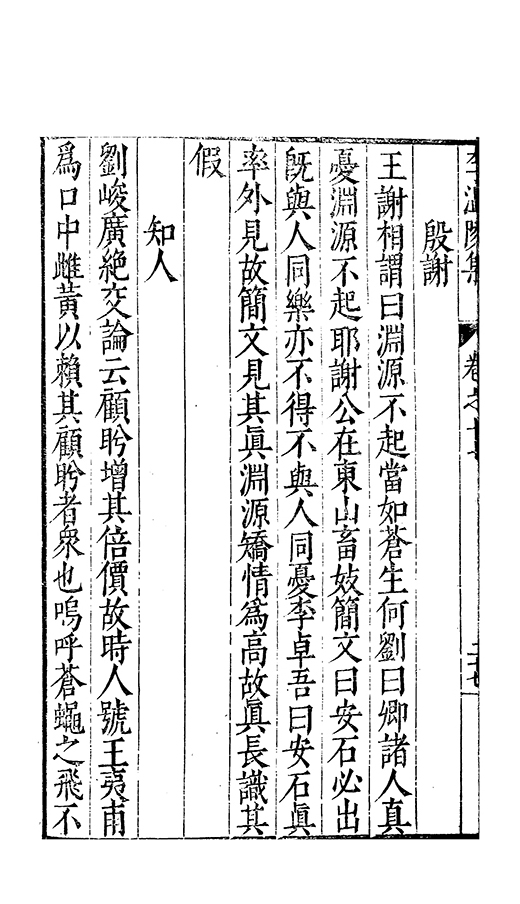 李溫陵集 卷之十
殷謝
王謝相謂曰淵源不起當如蒼生何劉曰卿諸人真
憂淵源不起耶謝公在東山畜妓簡文曰安石必出
旣與人同樂亦不得不與人同憂李卓吾曰安石眞
率外見故簡文見其眞淵源矯情爲高故眞長識其
假
知人
劉峻廣絶交論云顧盻增其倍價故時人號王夷甫
爲口中雌黃以賴其顧盻者衆也嗚呼蒼蠅之飛不